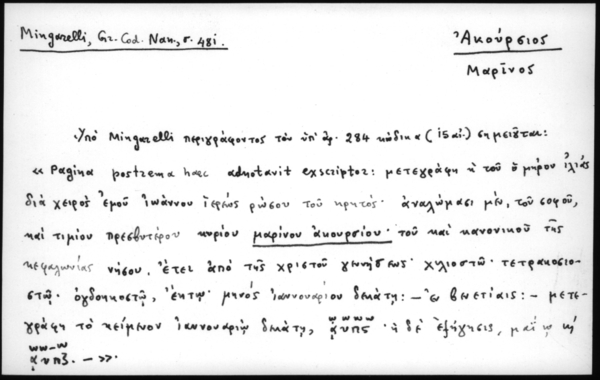 Mingarelli, Gr. Cod. Nan., σ. 481.
Ἀκούρσιος
Μαρῖνος
Ὑπό Mingarelli περιγράφοντος τόν ὑπ' ἀρ. 284 κώδικα (15 αἰ.) σημειοῦται:
«Pagina postrema haec adnotavit exscriptor: μετεγράφη ἡ τοῦ ὁμήρου ἰλιάς
διά χειρός ἐμοῦ ἰωάννου ἱερέως ρώσου τοῦ κρητός· ἀναλώμασι μέν, τοῦ σοφοῦ,
καί τιμίου πρεσβυτέρου κυρίου μαρίνου ἀκουρσίου· τοῦ καί κανονικοῦ τῆς
κεφαλωνίας νήσου. ἔτει ἀπό τῆς χριστοῦ γεννήσεως χιλιοστῷ· τετρακοσιο-
στῷ· ὀγδοηκοστῷ, ἕκτῳ· μηνός ἰαννουαρίου δεκάτῃ:— Ἐν βενετίαις:— μετε-
γράφη τό κείμενον ἰαννουαρίῳ δεκάτῃ, ͵αυπς· ἡ δέ ἐξήγησις, μαΐῳ κῃ
͵αυπζ. —»·